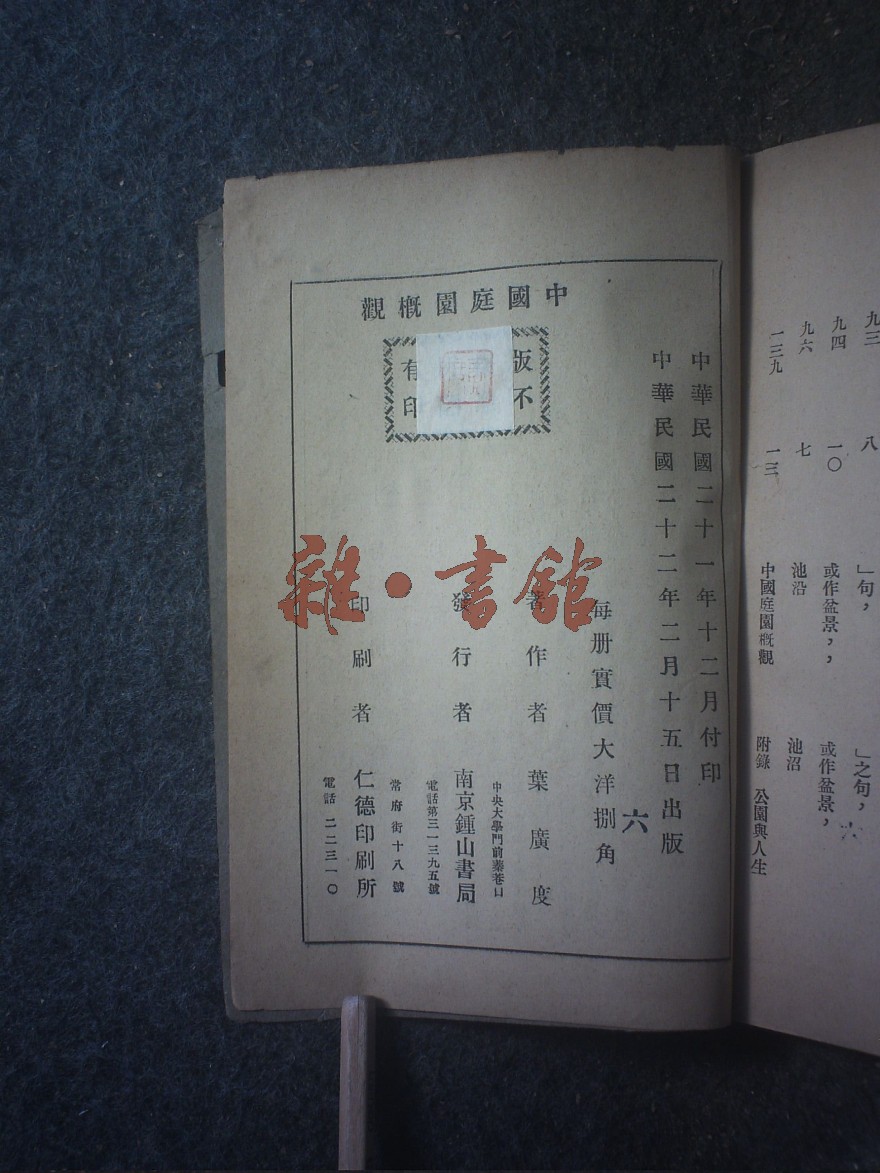 中國庭園概觀
版
不
有
印
中華民國二十一年十二月付印
中華民國二十二年二月十五日出版
每册實價大洋捌角
六
著作者 葉廣度
中央大學門前蓁巷口
發行者 南京鍾山書局
電話第三一三九五號
常府街十八號
印刷者 仁德印刷所
電話 二二三一〇
雜·書館
九三 八 」句， 」之句，
九四 一〇 或作盆景，， 或作盆景，
九六 七 池沿 池沼
一三九 一三 中國庭園概觀 附錄 公園與人生